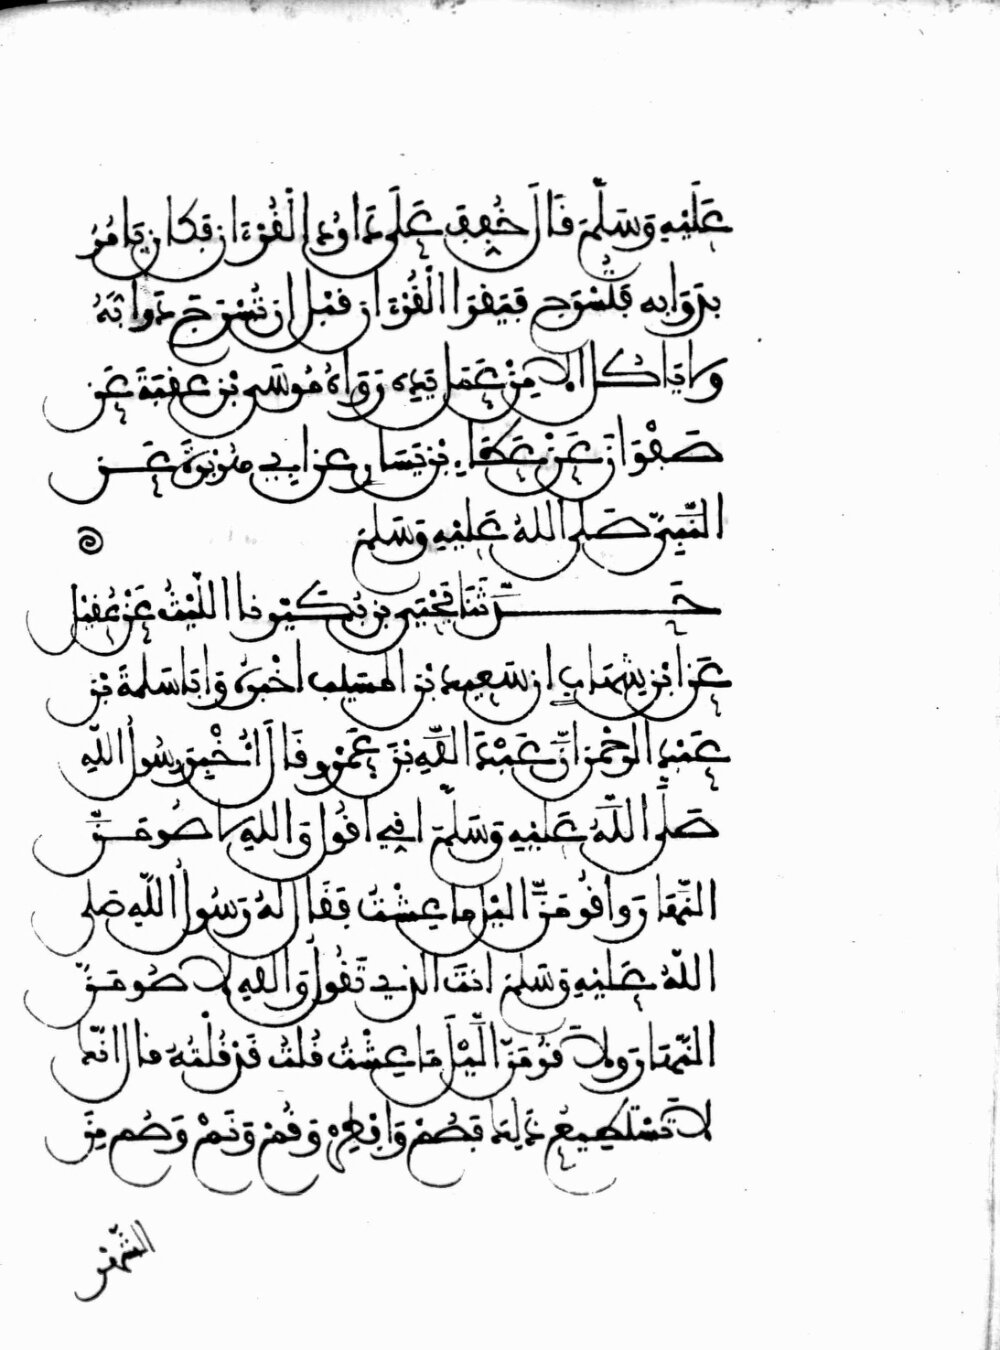 عَلَيْهِ وَسَلَّمَ قَالَ خُفِّفَ عَلَى دَاوُدَ الْقُرْءَانُ فَكَانَ يَامُرُ
بِدَوَابِهِ فَتُسْرَجُ فَيَقْرَأُ الْقُرْءَانَ قَبْلَ أَنْ تُسْرَجَ دَوَابُّهُ
وَلَا يَاكُلُ إِلَّا مِنْ عَمَلِ يَدِهِ رَوَاهُ مُوسَى بْنُ عُقْبَةَ عَنْ
صَفْوَانَ عَنْ عَطَاءِ بْنِ يَسَارٍ عَنْ أَبِي هُرَيْرَةَ عَنِ
النَّبِيِّ صَلَّى اللهُ عَلَيْهِ وَسَلَّمَ
حَدَّثَنَا يَحْيَى بْنُ بُكَيْرٍ نا اللَّيْثُ عَنْ عُقَيْلٍ
عَنِ ابْنِ شِهَابٍ أَنَّ سَعِيدَ بْنَ الْمُسَيِّبِ أَخْبَرَهُ وَأَبَا سَلَمَةَ بْنَ
عَبْدِ الرَّحْمٰنِ أَنَّ عَبْدَ اللَّهِ بْنَ عَمْرٍو قَالَ أُخْبِرَ رَسُولُ اللَّهِ
صَلَّى اللَّهُ عَلَيْهِ وَسَلَّمَ أَنِّي أَقُولُ وَاللَّهِ لَأَصُومَنَّ
النَّهَارَ وَلَأَقُومَنَّ اللَّيْلَ مَا عِشْتُ فَقَالَ لَهُ رَسُولُ اللَّهِ صَلَّى
اللَّهُ عَلَيْهِ وَسَلَّمَ أَنْتَ الَّذِي تَقُولُ وَاللَّهِ لَأَصُومَنَّ
النَّهَارَ وَلَأَقُومَنَّ اللَّيْلَ مَا عِشْتُ قُلْتُ قَدْ قُلْتُهُ قَالَ إِنَّكَ
لَا تَسْتَطِيعُ ذَلِكَ فَصُمْ وَأَفْطِرْ وَقُمْ وَنَمْ وَصُمْ مِنَ
الشَّهْرِ